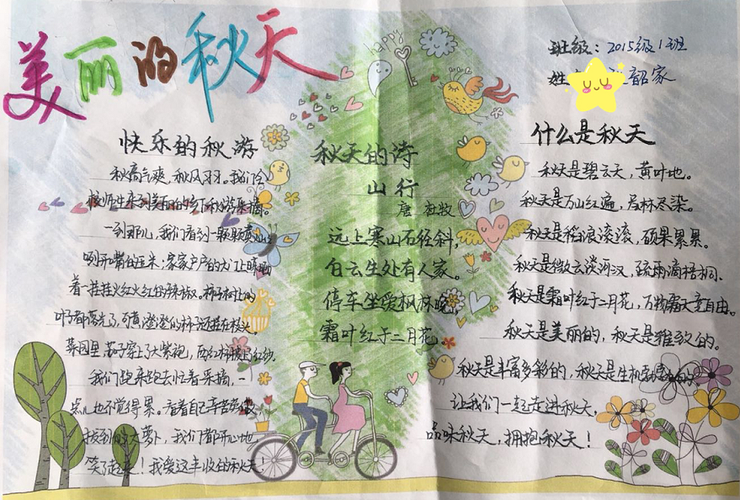 美丽的秋天
班级：2015级1班
姓
韶家
快乐的秋游
秋高气爽，秋风习习。我们全
校师生来到美丽的乡下秋游采摘。
一到那儿，我们看到一颗颗
咧开嘴的玉米；家家户户的大门上
着一挂挂火红火红的辣椒，柿子树上的
叶子都落光了，可黄澄澄的柿子还挂在枝头
菜园里，茄子穿上了紫袍，
我们跑来跑去忙着采摘，一
点儿也不觉得累。看着自己辛苦
拔到的大萝卜，我们都开心地
笑了起来！我爱这丰收的秋天！
秋天的诗
山行
唐 杜牧
远上寒山石径斜，
白云生处有人家。
停车坐爱枫林晚，
霜叶红于二月花。
什么是秋天
秋天是碧云天，黄叶地。
秋天是万山红遍，层林尽染。
秋天是稻浪滚滚，硕果累累。
秋天是微云淡河汉，疏雨滴梧桐。
秋天是霜叶红于二月花，万类霜天竞自由。
秋天是美丽的，秋天是雅致的。
秋天是丰富多彩的，秋天是生机勃勃的。
让我们一起走进秋天，
品味秋天，拥抱秋天！